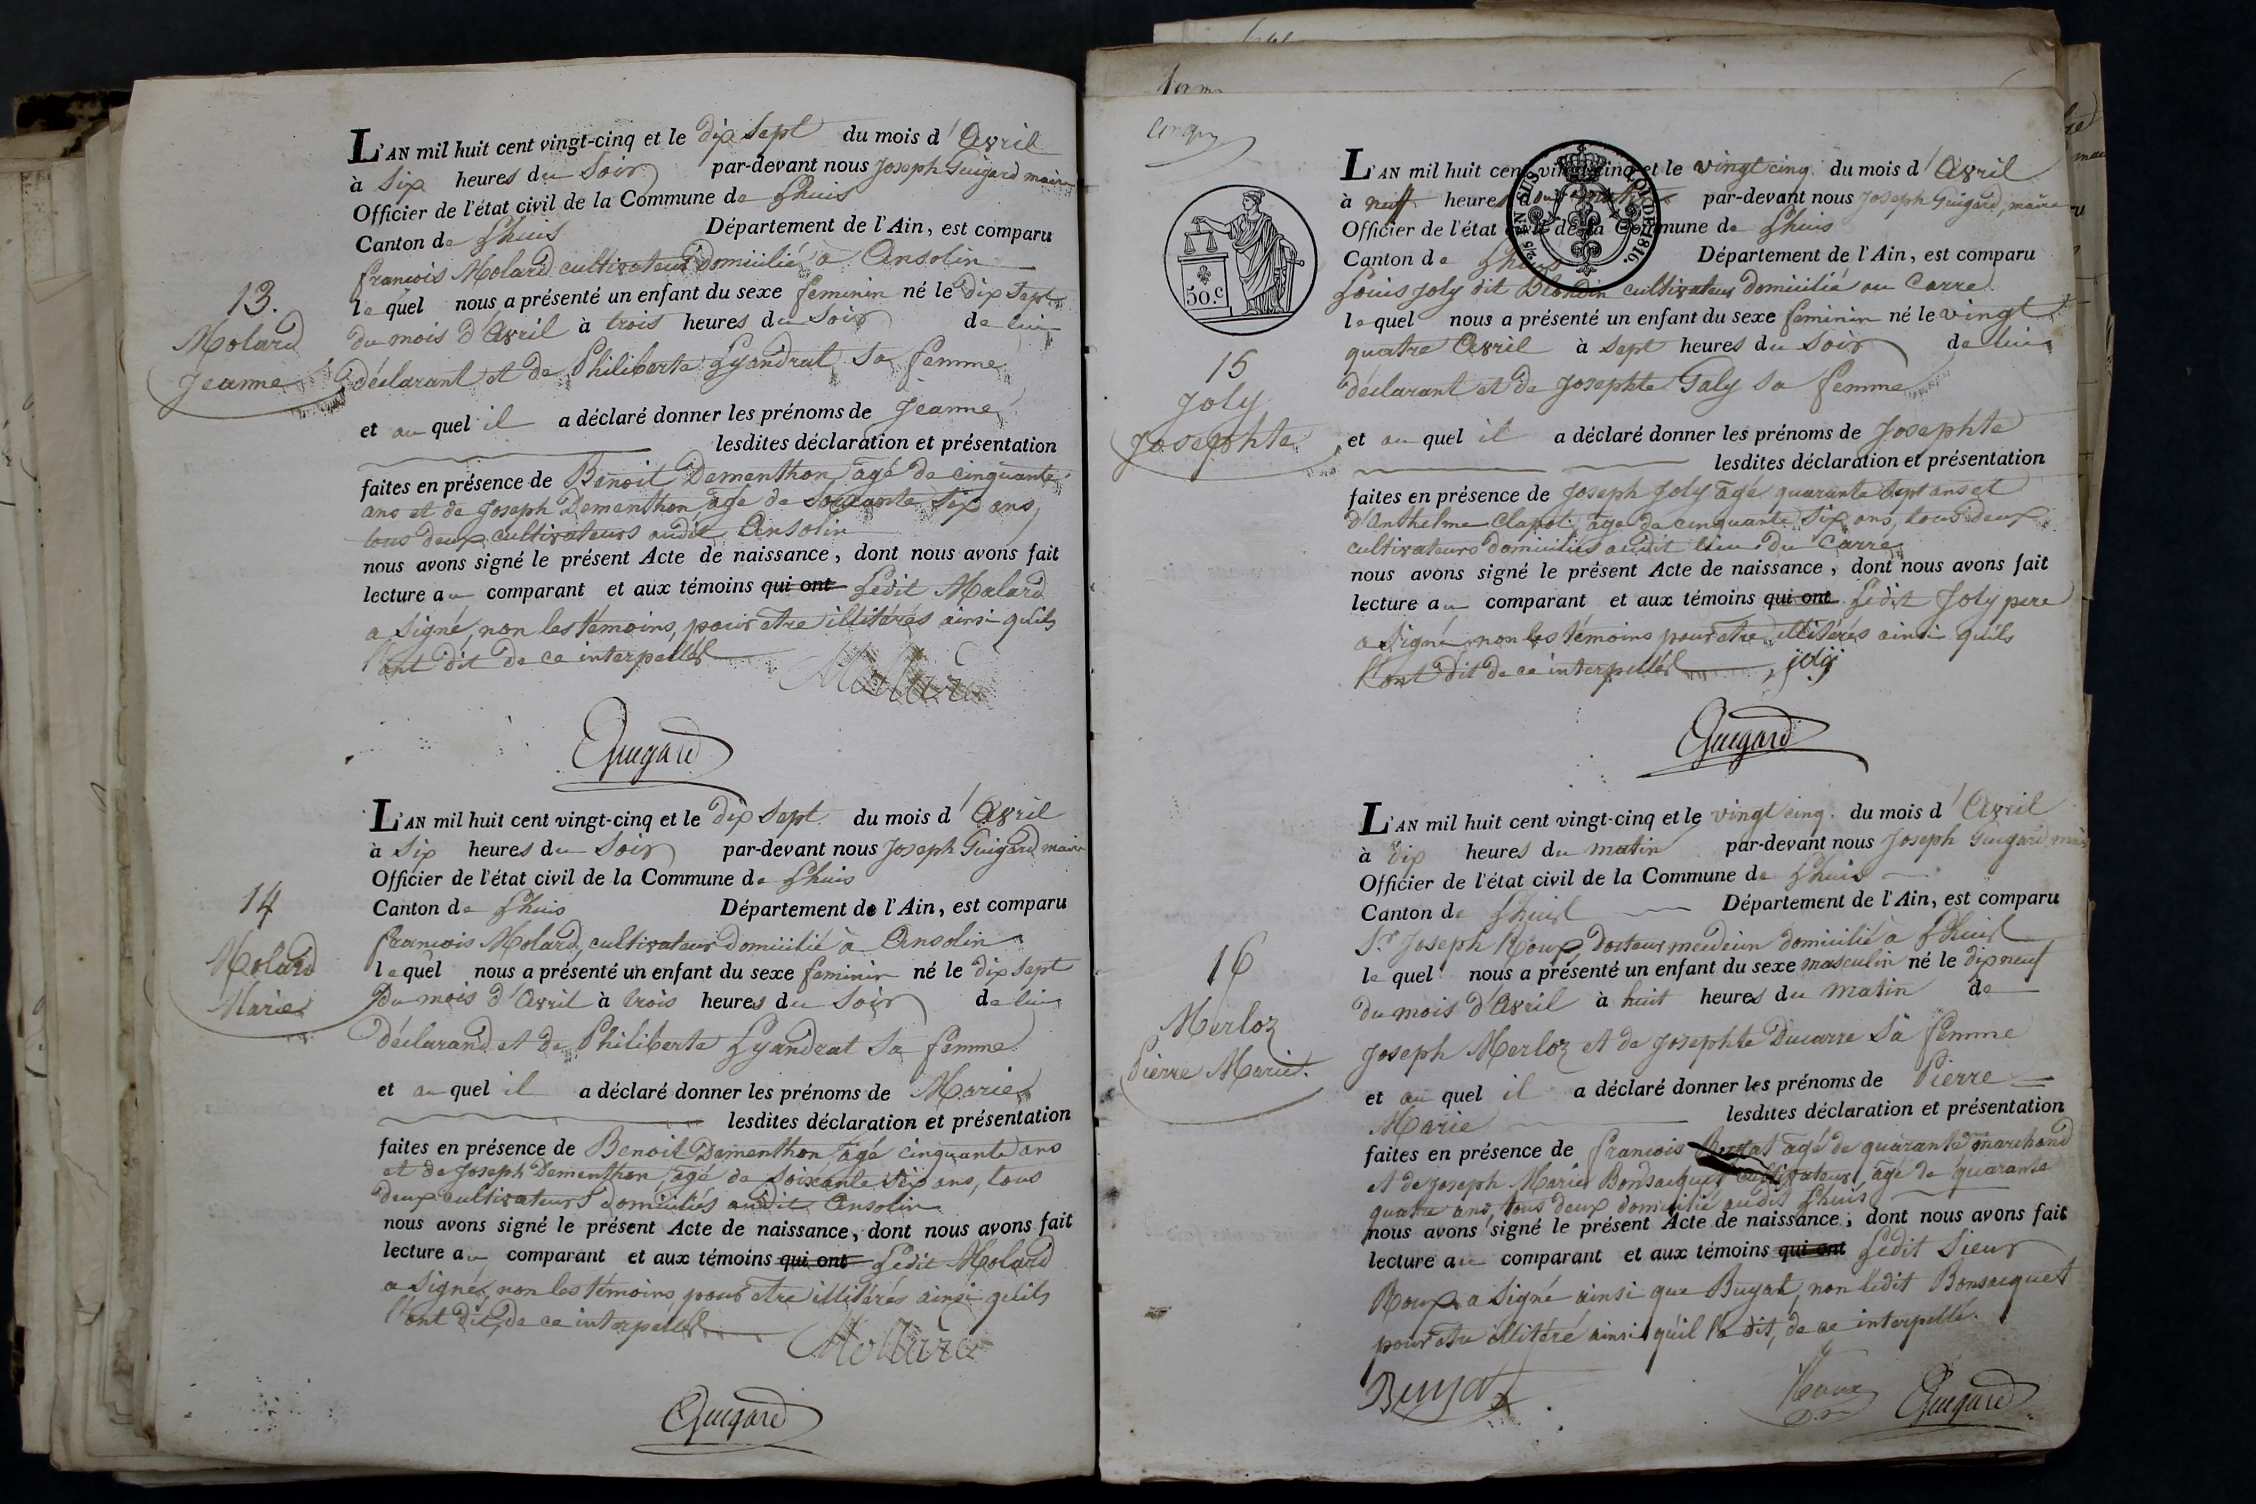 13.
Molard
Jeanne
L'AN mil huit cent vingt-cinq et le dix sept du mois d'Avril
à Six heures du Soir par-devant nous Joseph Guigard maire
Officier de l'état civil de la Commune de Lhuis
Canton de Lhuis Département de l'Ain, est comparu
françois Molard cultivateur domicilié à Ansolin
lequel nous a présenté un enfant du sexe feminin né le dix sept
du mois d'Avril à trois heures du Soir de lui
déclarant et de Philiberte Lyandrat sa femme
et au quel il a déclaré donner les prénoms de Jeanne
lesdites déclaration et présentation
faites en présence de Benoit Dementhon, agé de cinquante
ans et de Joseph Dementhon, agé de Soixante Six ans,
tous deux cultivateurs audit Ansolin
nous avons signé le présent Acte de naissance, dont nous avons fait
lecture au comparant et aux témoins qui ont Ledit Molard
a Signé, non les témoins, pour etre illitérés ainsi qu'ils
l'ont dit de ce interpellés
Mollard
Guigard
14
Molard
Marie
L'AN mil huit cent vingt-cinq et le dix Sept du mois d'Avril
à Six heures du Soir par-devant nous Joseph Guigard maire
Officier de l'état civil de la Commune de Lhuis
Canton de Lhuis Département de l'Ain, est comparu
françois Molard, cultivateur domicilié à Ansolin
lequel nous a présenté un enfant du sexe feminin né le dix sept
du mois d'Avril à trois heures du Soir de lui
déclarand et de Philiberte Lyandrat Sa femme
et au quel il a déclaré donner les prénoms de Marie
lesdites déclaration et présentation
faites en présence de Benoit Dementhon, agé cinquante ans
et de Joseph Dementhon, agé de Soixante Six ans, tous
deux cultivateurs domiciliés audit Ansolin
nous avons signé le présent Acte de naissance, dont nous avons fait
lecture au comparant et aux témoins qui ont Ledit Molard
a Signé, non les témoins pour etre illitérés ainsi qu'ils
l'ont dit, de ce interpellés
Mollard
Guigard
cinq
50.c
EN SUS
LOI DE 1816.
15
Joly
Josephte
L'AN mil huit cent vingt-cinq et le vingt cinq du mois d'Avril
à neuf heures du matin par-devant nous Joseph Guigard, maire
Officier de l'état civil de la Commune de Lhuis
Canton de Lhuis Département de l'Ain, est comparu
Louis Joly dit Blondin cultivateur domicilié au Carre
lequel nous a présenté un enfant du sexe feminin né le vingt
quatre Avril à Sept heures du Soir de lui
déclarant et de Josephte Galy sa femme
et au quel il a déclaré donner les prénoms de Josephte
lesdites déclaration et présentation
faites en présence de Joseph Joly agé quarante Sept ans et
d'Anthelme Clapot, agé de cinquante Six ans, tous deux
cultivateurs domiciliés audit lieu du Carre
nous avons signé le présent Acte de naissance, dont nous avons fait
lecture au comparant et aux témoins qui ont Ledit Joly pere
a Signé, non les témoins pour etre illitérés ainsi qu'ils
l'ont dit de ce interpellés joly
Guigard
16
Merloz
Pierre Marie.
L'AN mil huit cent vingt-cinq et le vingt cinq du mois d'Avril
à dix heures du matin par-devant nous Joseph Guigard maire
Officier de l'état civil de la Commune de Lhuis
Canton de Lhuis Département de l'Ain, est comparu
Sr Joseph Roux, Docteur medecin domicilié à Lhuis
lequel nous a présenté un enfant du sexe masculin né le dix neuf
du mois d'Avril à huit heures du Matin de
Joseph Merloz et de Josephte Ducarre Sa femme
et au quel il a déclaré donner les prénoms de Pierre
Marie lesdites déclaration et présentation
faites en présence de françois agé de quarante marchand
et de Joseph Marie Bonsacquet cultivateur, agé de quarante
quatre ans, tous deux domicilié audit Lhuis
nous avons signé le présent Acte de naissance; dont nous avons fait
lecture au comparant et aux témoins qui ont Ledit Sieur
Roux a Signé ainsi que Buyat, non ledit Bonsacquet
pour etre illitéré ainsi qu'il l'a dit, de ce interpellé.
Buyat
Roux
Guigard